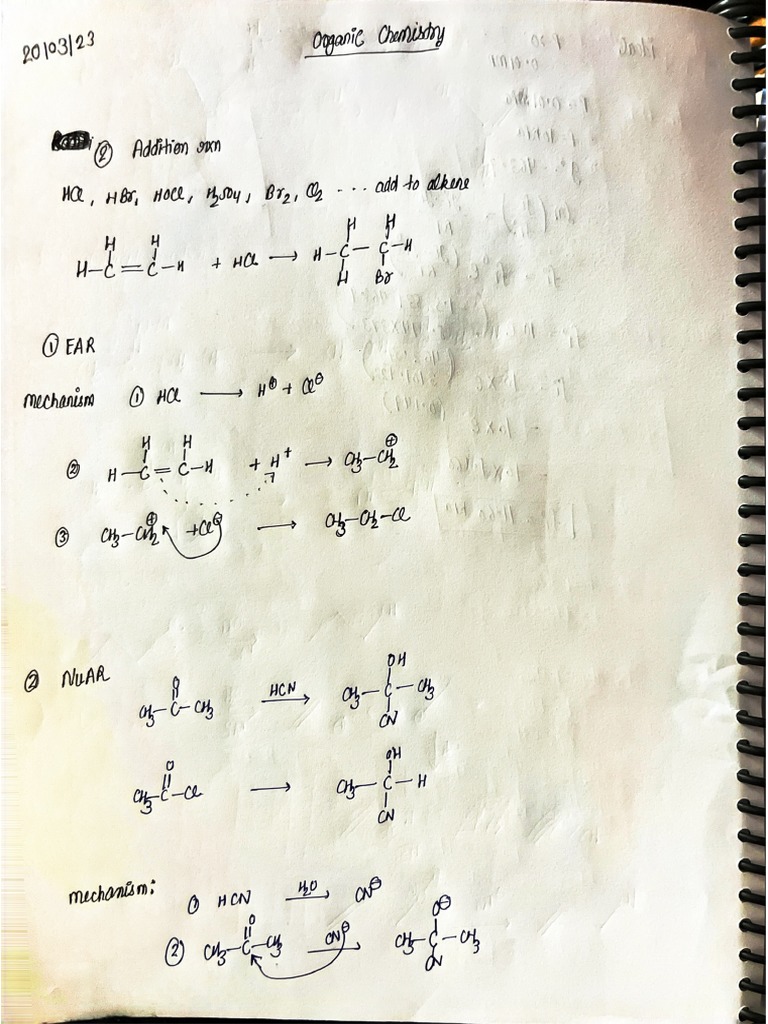 20/03/23
Organic Chemistry
② Addition rxn
HCl, HBr, HOCl, H2SO4, Br2, Cl2 ... add to alkene
H H H H
H-C=C-H + HCl → H-C-C-H
H Br
① EAR
Mechanism ① HCl → H⊕ + Cl⊖
H H
② H-C=C-H + H+ → CH3-CH2⊕
③ CH3-CH2⊕ + Cl⊖ → CH3-CH2-Cl
② NuAR
O OH
CH3-C-CH3 HCN → CH3-C-CH3
CN
O OH
CH3-C-Cl → CH3-C-H
CN
Mechanism: ① HCN H2O → CN⊖
O O⊖
② CH3-C-CH3 CN⊖ → CH3-C-CH3
CN